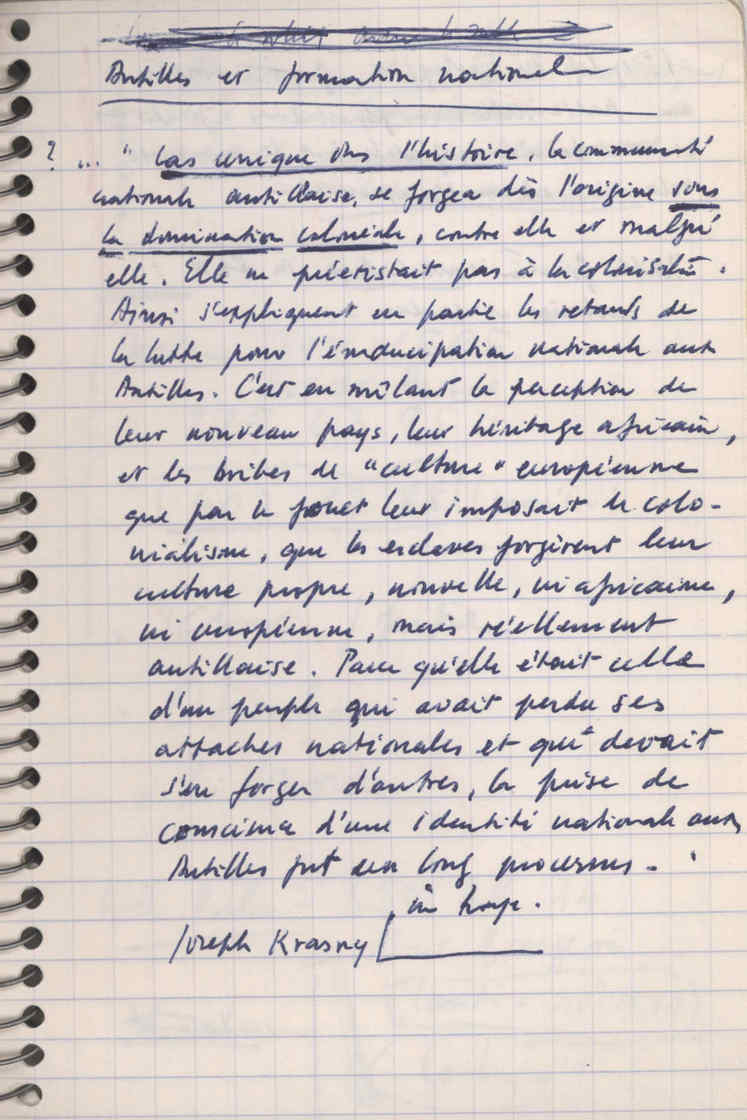 Antilles et formation nationale
? ... " Cas unique ds l'histoire, la communauté
nationale antillaise, se forgea dès l'origine sous
la domination coloniale, contre elle et malgré
elle. Elle ne préexistait pas à la colonisatn.
Ainsi s'expliquent en partie les retards de
la lutte pour l'émancipation nationale aux
Antilles. C'est en mêlant la perception de
leur nouveau pays, leur héritage africain,
et les bribes de "culture" européenne
que par le fouet leur imposait le colo-
nialisme, que les esclaves forgèrent leur
culture propre, nouvelle, ni africaine,
ni européenne, mais réellement
antillaise. Parce qu'elle était celle
d'un peuple qui avait perdu ses
attaches nationales et qui devait
s'en forger d'autres, la prise de
conscience d'une identité nationale aux
Antilles fut un long processus. "
Joseph Krasny